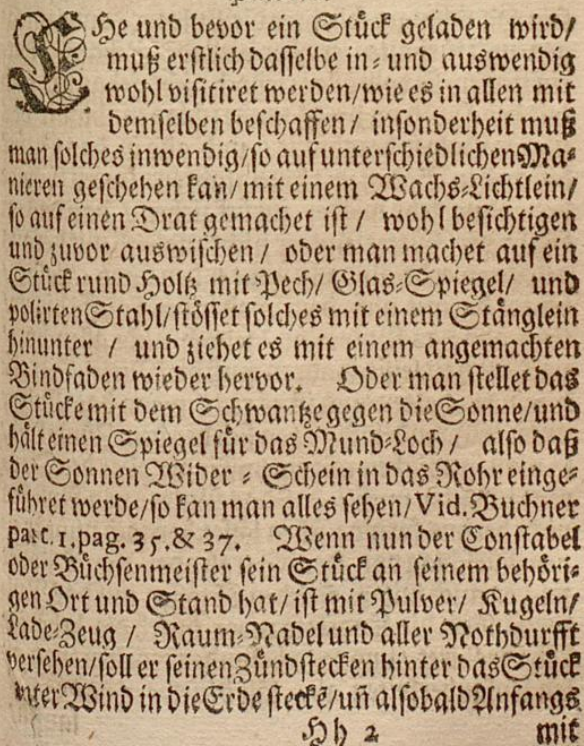 EHe und bevor ein Stück geladen wird/
muß erstlich dasselbe in- und auswendig
wohl visitiret werden/wie es in allen mit
demselben beschaffen/ insonderheit muß
man solches inwendig/so auf unterschiedlichen Ma-
nieren geschehen kan/mit einem Wachs-Lichtlein/
so auf einen Drat gemachet ist/ wohl besichtigen
und zuvor auswischen/ oder man machet auf ein
Stück rund Holtz mit Pech/ Glas-Spiegel/ und
polirten Stahl/stösset solches mit einem Stänglein
hinunter / und ziehet es mit einem angemachten
Bindfaden wieder hervor. Oder man stellet das
Stücke mit dem Schwantze gegen die Sonne/und
hält einen Spiegel für das Mund-Loch/ also daß
der Sonnen Wider-Schein in das Rohr einge-
führet werde/so kan man alles sehen/Vid. Buchner
part. 1. pag. 35. & 37. Wenn nun der Constabel
oder Büchsenmeister sein Stück an seinem behöri-
gen Ort und Stand hat/ ist mit Pulver/ Kugeln/
Lade-Zeug / Raum-Nadel und aller Nothdurfft
versehen/soll er seinen Zündstecken hinter das Stück
unter Wind in die Erde steckē/uñ alsobald Anfangs
Hh 2 mit